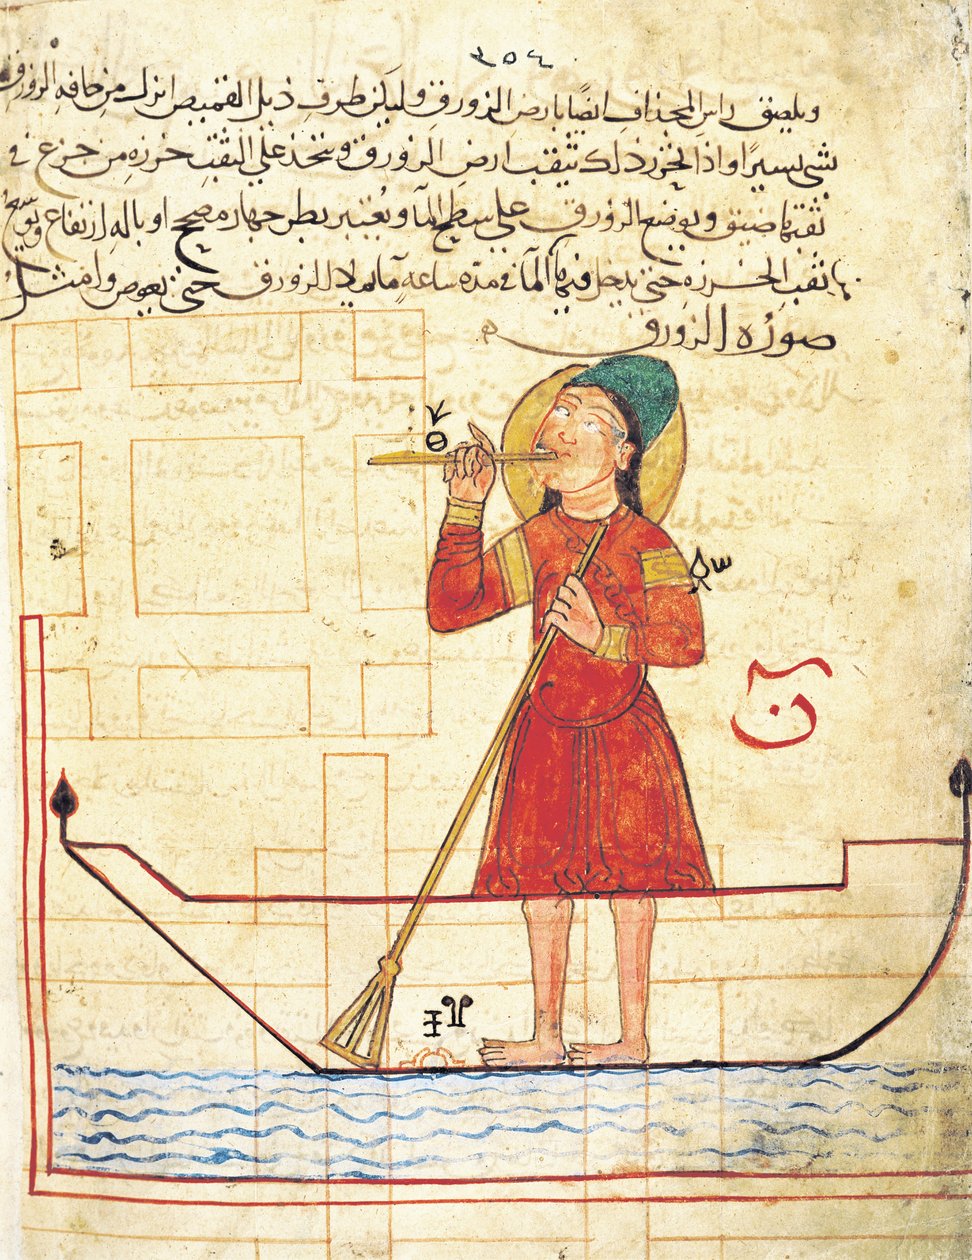 ٢٥٤
ويلصق راس المجذاف ايضا بارض الزورق وليكن طرف ذيل القميص انزل من حافه الزورق
بشى يسيرا واذا تحرر ذلك يثقب ارض الزورق ويتخذ على الثقب خرزه من جزع في
ثقبها ضيق ويوضع الزورق على سطح المآ ويعتبر بطرجهار مصحح او باله ارتفاع ويوسع
ثقب الخرزه حتى يدخل فيها المآ في مدة ساعه ما يملا الزورق حتى يغوص وامثل
صوره الزورق
ن